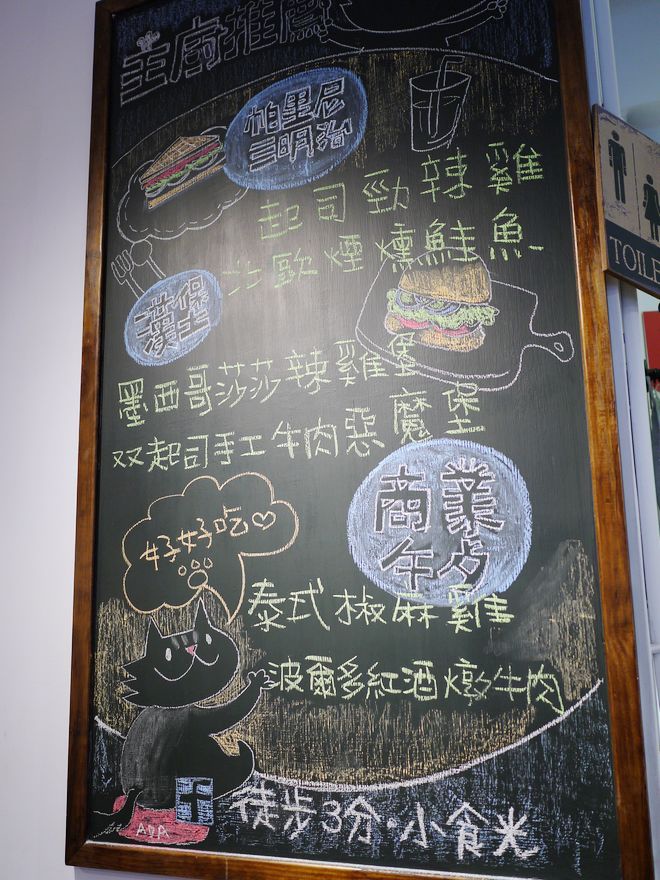 主廚推薦
帕里尼
三明治
起司勁辣雞
北歐煙燻鮭魚
漢堡
墨西哥莎莎辣雞堡
双起司手工牛肉惡魔堡
商業
午夕
好好吃♡
泰式椒麻雞
波爾多紅酒燉牛肉
徒步3分·小食光
ADA
TOILE